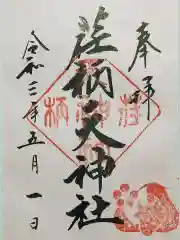 奉拝
荏柄天神社
令和三年五月一日